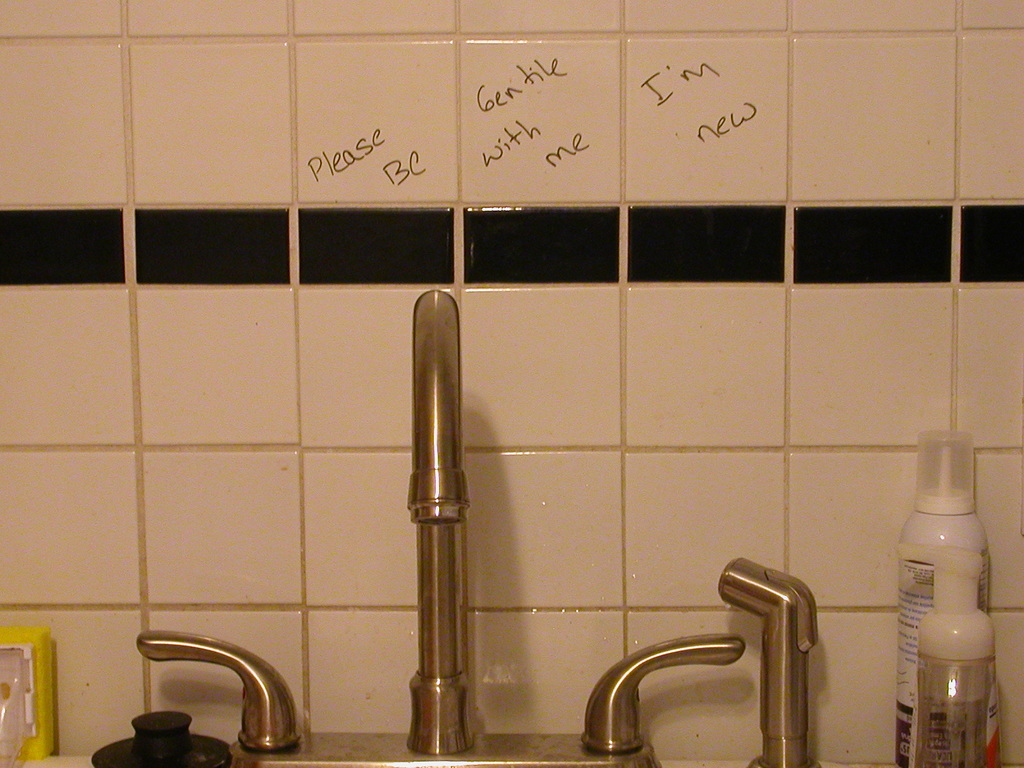 Please
BE
Gentile
with
me
I'm
new